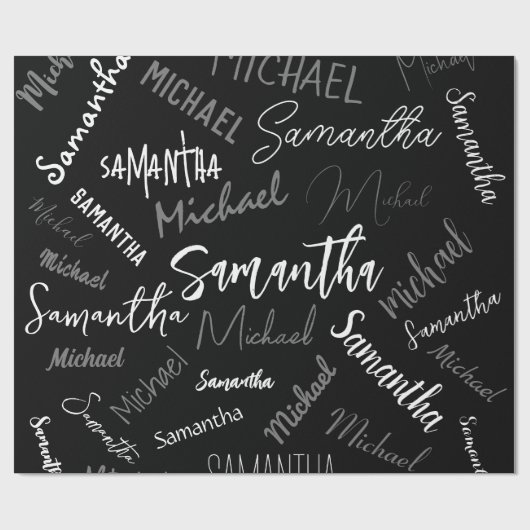 Michael
Samantha
MICHAEL
MICHAEL
Michael
Samantha
Samantha
SAMANTHA
Michael
Michael
SAMANTHA
Michael
Michael
Samantha
Michael
Samantha
Michael
Samantha
Michael
Samantha
Michael
Michael
Samantha
Michael
Samantha
Michael
Samantha
Samantha
Michael
Samantha
Samantha
Michael
SAMANTHA